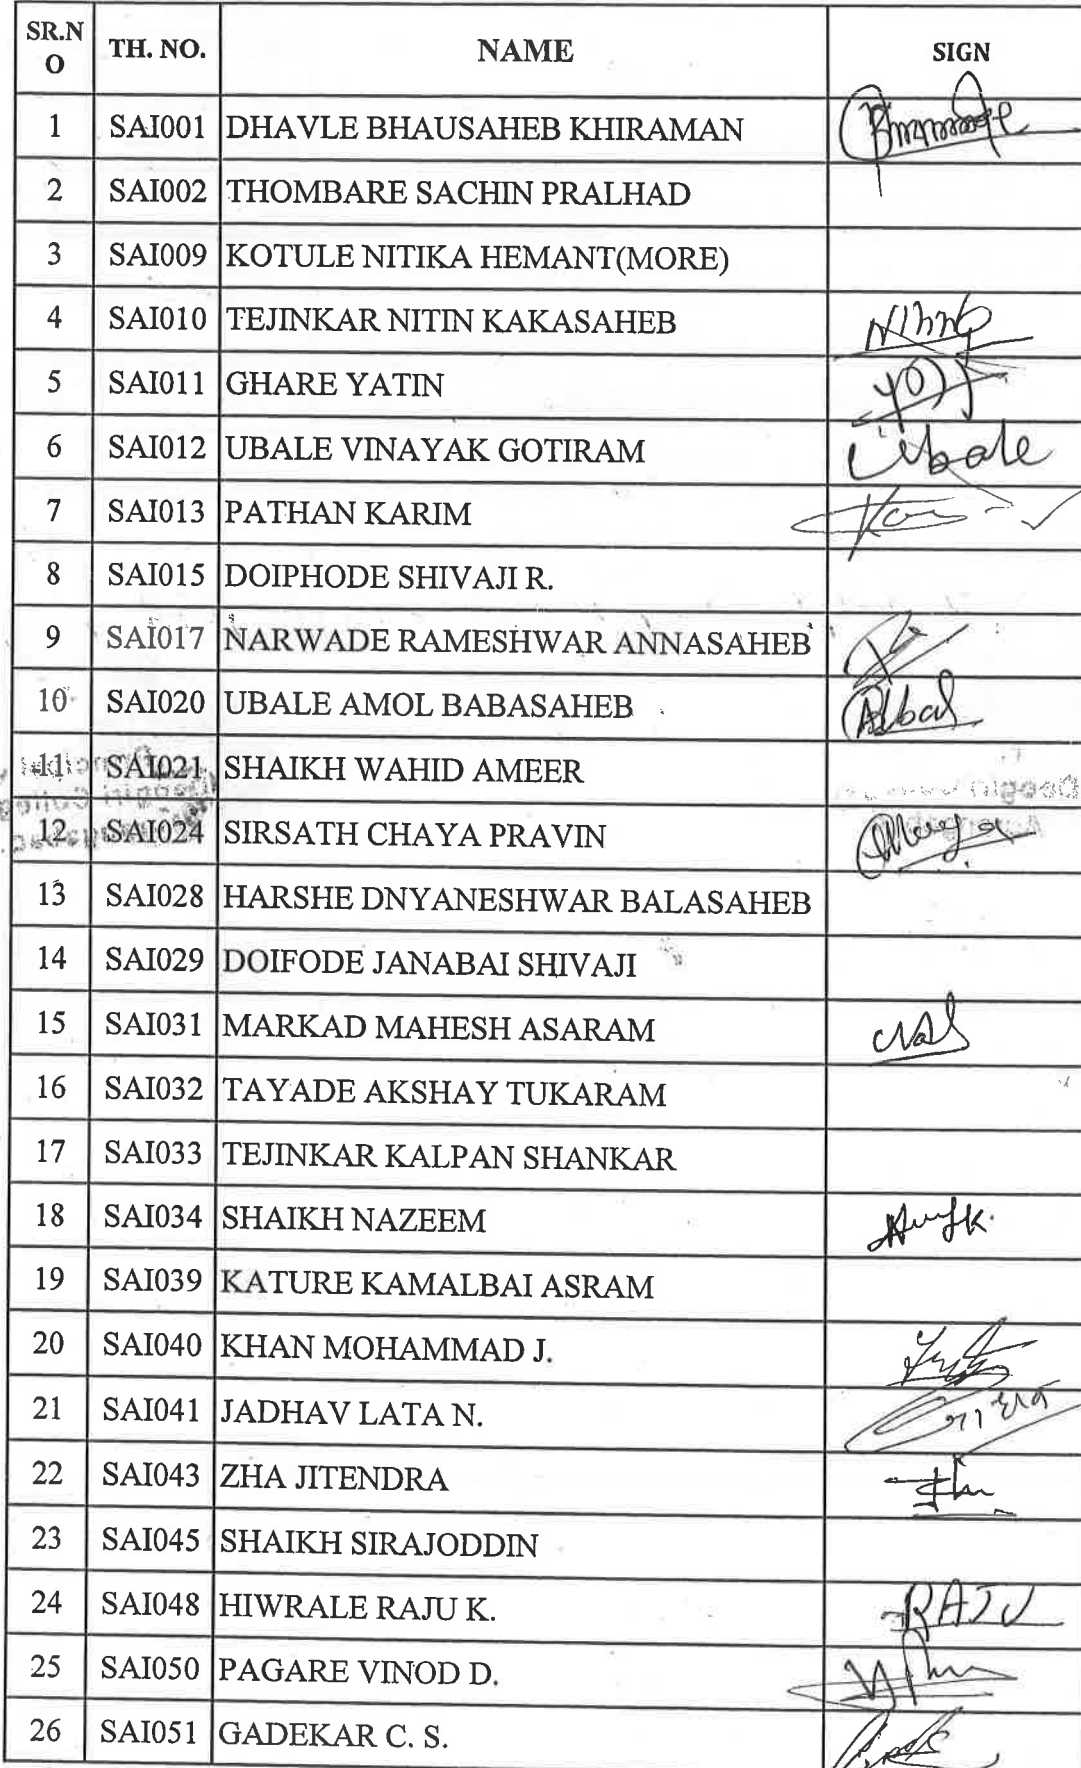 SR.N
O TH. NO. NAME SIGN
1 SAI001 DHAVLE BHAUSAHEB KHIRAMAN
2 SAI002 THOMBARE SACHIN PRALHAD
3 SAI009 KOTULE NITIKA HEMANT(MORE)
4 SAI010 TEJINKAR NITIN KAKASAHEB
5 SAI011 GHARE YATIN
6 SAI012 UBALE VINAYAK GOTIRAM Ubale
7 SAI013 PATHAN KARIM
8 SAI015 DOIPHODE SHIVAJI R.
9 SAI017 NARWADE RAMESHWAR ANNASAHEB
10 SAI020 UBALE AMOL BABASAHEB
11 SAI021 SHAIKH WAHID AMEER
12 SAI024 SIRSATH CHAYA PRAVIN
13 SAI028 HARSHE DNYANESHWAR BALASAHEB
14 SAI029 DOIFODE JANABAI SHIVAJI
15 SAI031 MARKAD MAHESH ASARAM
16 SAI032 TAYADE AKSHAY TUKARAM
17 SAI033 TEJINKAR KALPAN SHANKAR
18 SAI034 SHAIKH NAZEEM
19 SAI039 KATURE KAMALBAI ASRAM
20 SAI040 KHAN MOHAMMAD J.
21 SAI041 JADHAV LATA N.
22 SAI043 ZHA JITENDRA
23 SAI045 SHAIKH SIRAJODDIN
24 SAI048 HIWRALE RAJU K. RAJU
25 SAI050 PAGARE VINOD D.
26 SAI051 GADEKAR C. S.